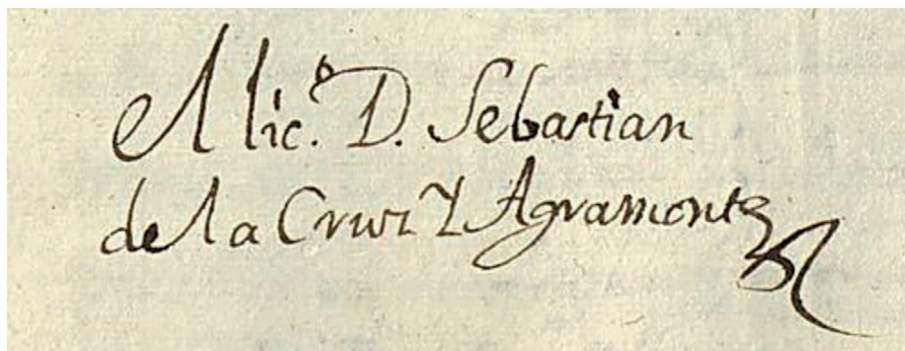 el lic.º D. Sebastian
de la Cruz Y Agramonte